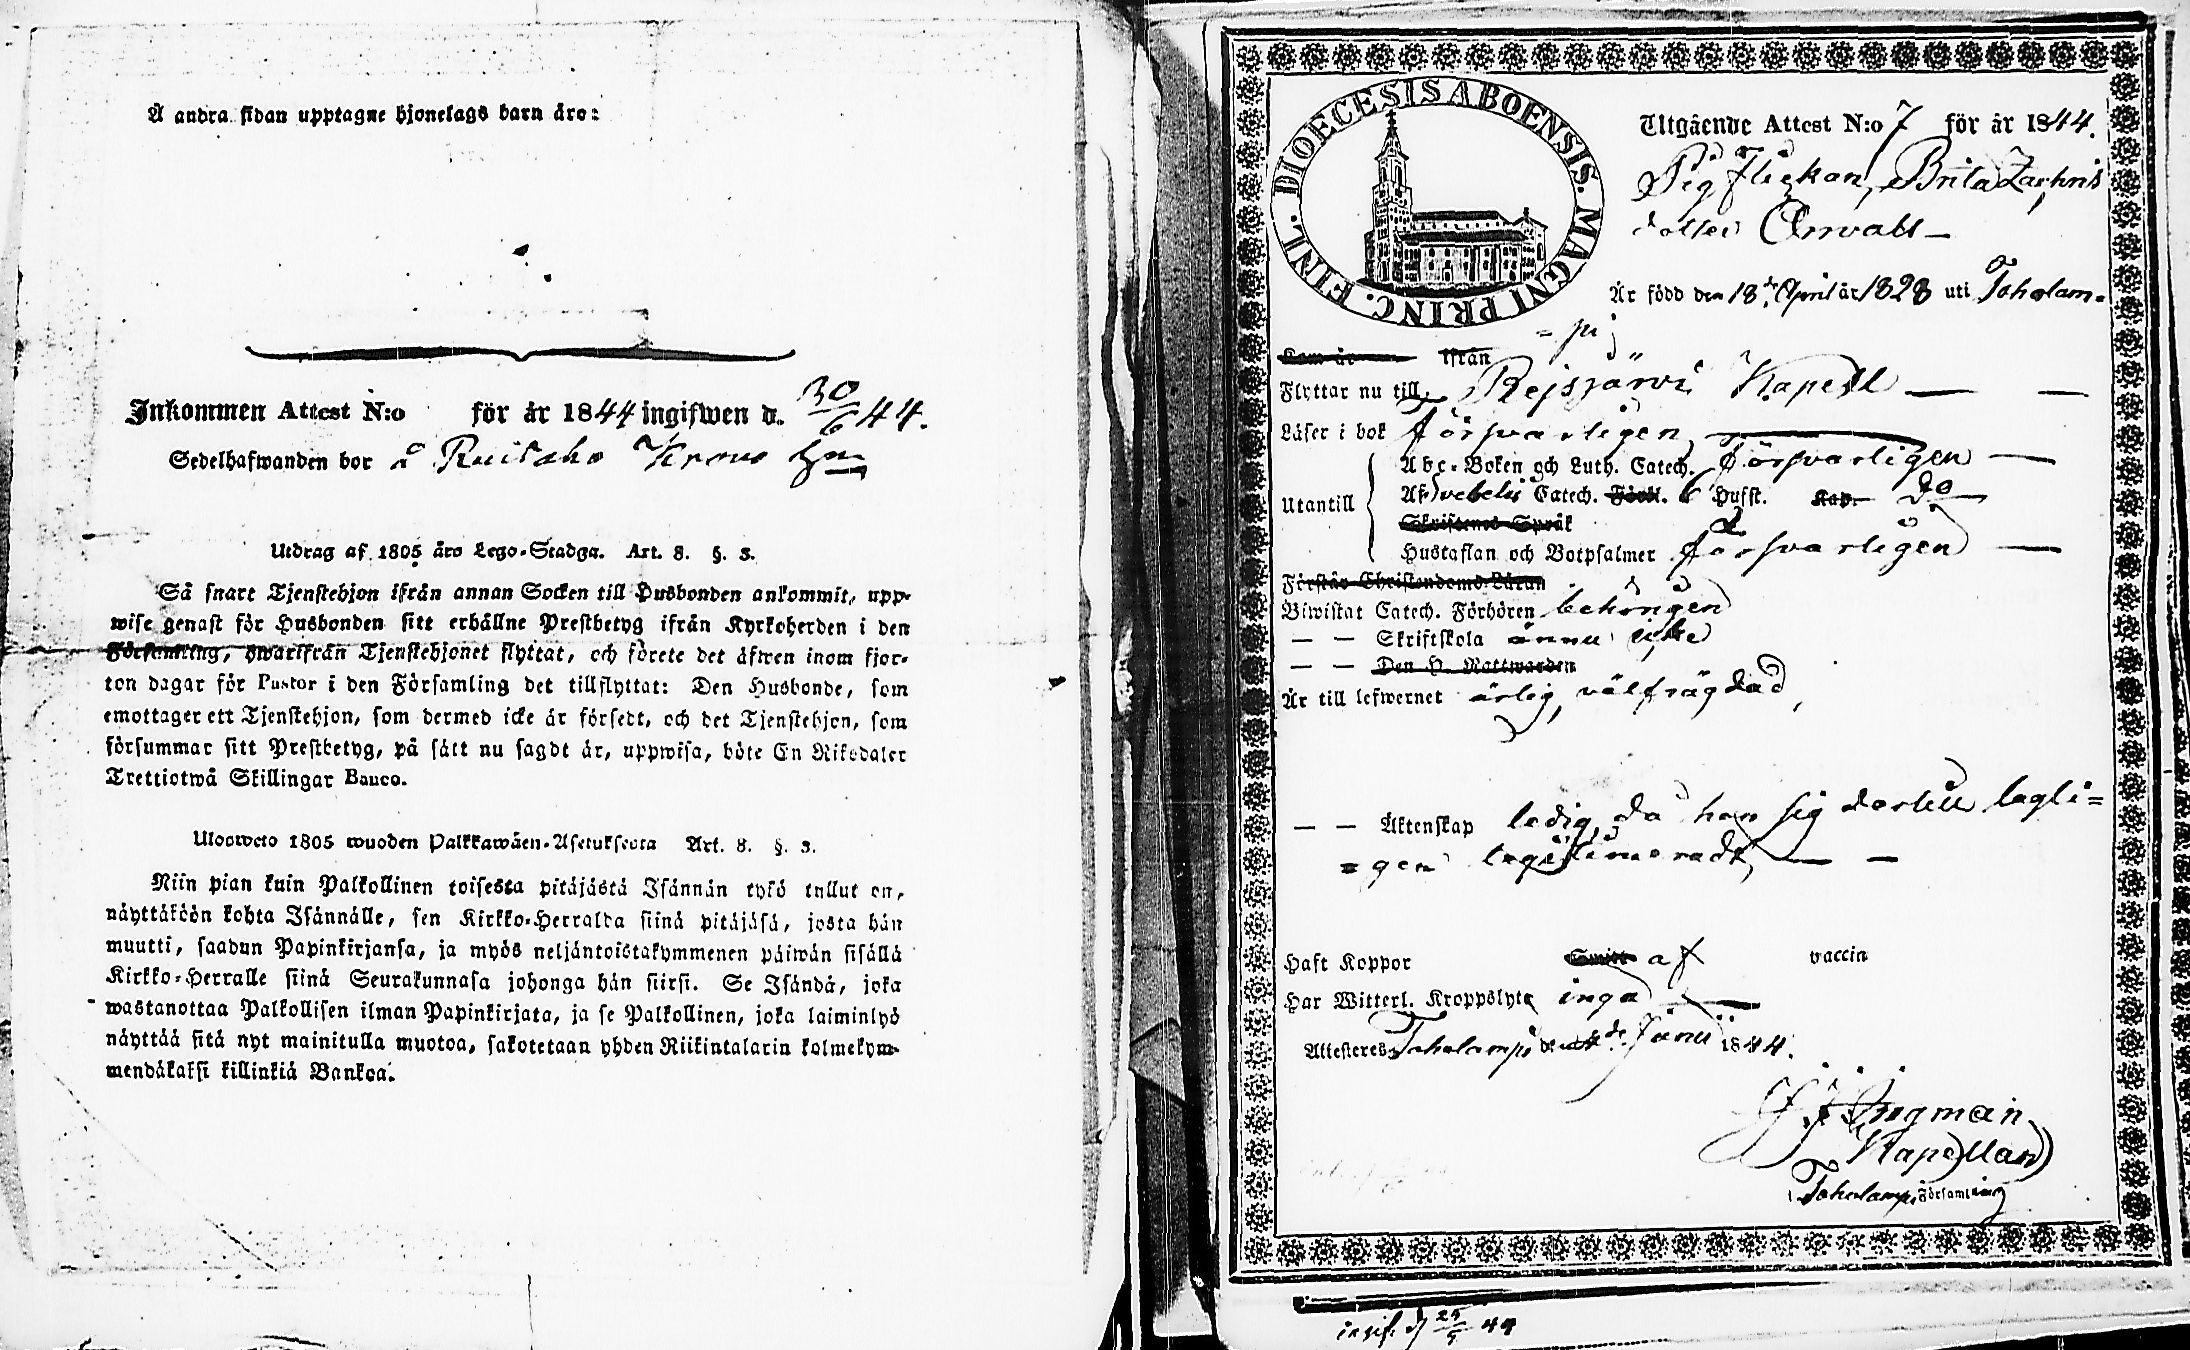 Å andra sidan upptagne hjonelags barn äro:
Inkommen Attest N:o för år 1844 ingifwen d. 30/6 44.
Sedelhafwanden bor å Ruitaho Krono Hn
Utdrag af 1805 års Lego-Stadga. Art. 8. §. 3.
Så snart Tjenstehjon ifrån annan Socken till Husbonden ankommit, upp-
wise genast för Husbonden sitt erhållne Prestbetyg ifrån Kyrkoherden i den
Församling, hwarifrån Tjenstehjonet flyttat, och förete det äfwen inom fjor-
ton dagar för Pastor i den Församling det tillflyttat: Den Husbonde, som
emottager ett Tjenstehjon, som dermed icke är försedt, och det Tjenstehjon, som
försummar sitt Prestbetyg, på sätt nu sagdt är, uppwisa, böte En Riksdaler
Trettiotwå Skillingar Banco.
Uloosweto 1805 wuoden Palkkawäen-Asetuksesta Art. 8. §. 3.
Niin pian kuin Palkollinen toisesta pitäjästä Isännän tykö tullut on,
näyttäköön kohta Isännälle, sen Kirkko-Herralda siinä pitäjäsä, josta hän
muutti, saadun Papinkirjansa, ja myös neljäntoistakymmenen päiwän sisällä
Kirkko-Herralle siinä Seurakunnasa johonga hän siirsi. Se Isändä, joka
wastanottaa Palkollisen ilman Papinkirjata, ja se Palkollinen, joka laiminlyö
näyttää sitä nyt mainitulla muotoa, sakotetaan yhden Riikintalarin kolmekym-
mendäkaksi killinkiä Bankoa.
DIOECESIS ABOENSIS. MAGNI PRINC. FINL.
Utgående Attest N:o 7 för år 1844.
Pig flickan, Brita Zachris
dotter Orrvall —
Är född den 18de April år 1828 uti Toholam-
=pi
Kom år ifrån
Flyttar nu till Rejsjärvi Kapell — —
Läser i bok försvarligen
Utantill
Abc-Boken och Luth. Catech. försvarligen —
Af Svebelii Catech. Förkl. 6 Hufst. Kap. do
Skriftenes Språk
Hustaflan och Botpsalmer försvarligen —
Förstår Christendoms-Läran
Biwistat Catech. Förhören behörigen
— — Skriftskola ännu icke
— — Den H. Nattwarden
Är till lefwernet ärlig, välfrägdad,
— — Äktenskap ledig, då hon sig dertill lagli=
=gen legitimeradt, — —
Haft Koppor Smitt af vaccin
Har Witterl. Kroppslyte inga —
Attesteres Toholampi den 4de Junii 1844.
J J Ingman
Kapellan
i Toholampi Församling
ingif. d 25/9 49